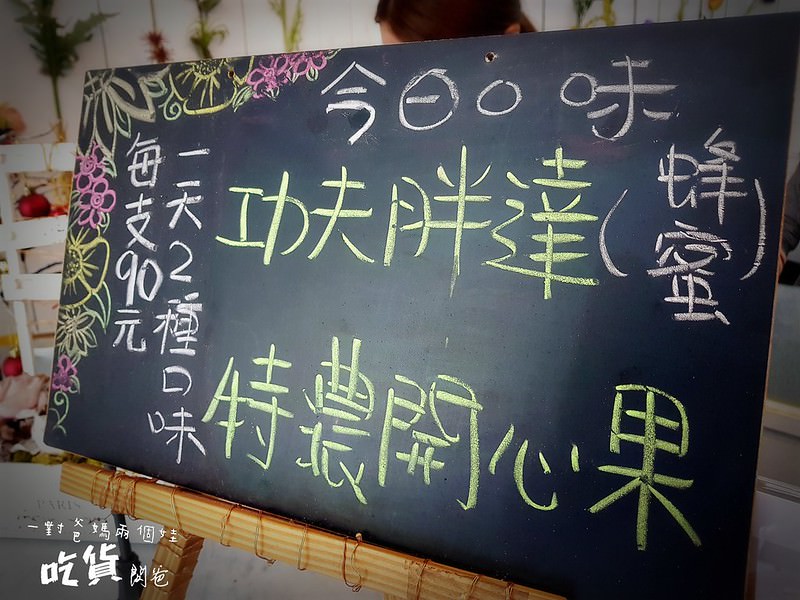 今日口味
功夫胖達(蜂蜜)
特濃開心果
一天2種口味
每支90元
PARIS
一對爸媽兩個娃
吃貨 爸